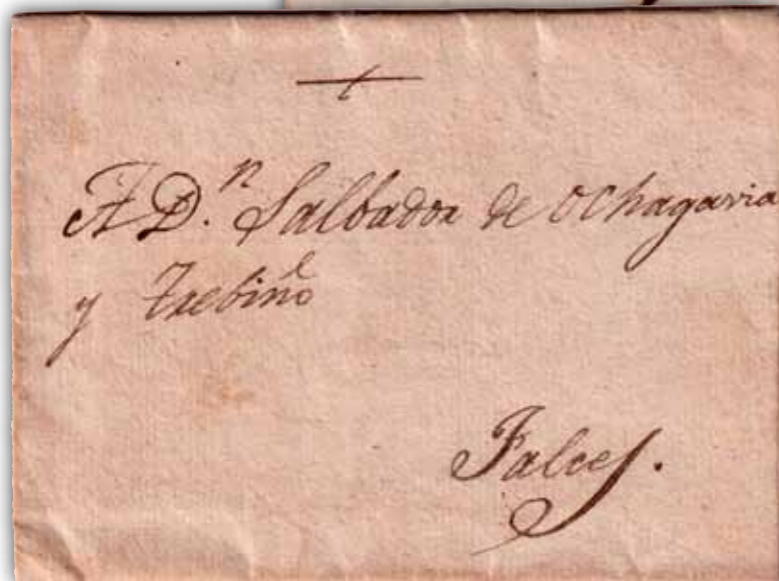 A D.n Salbador de Ochagavia
y Trebiño
Falces.